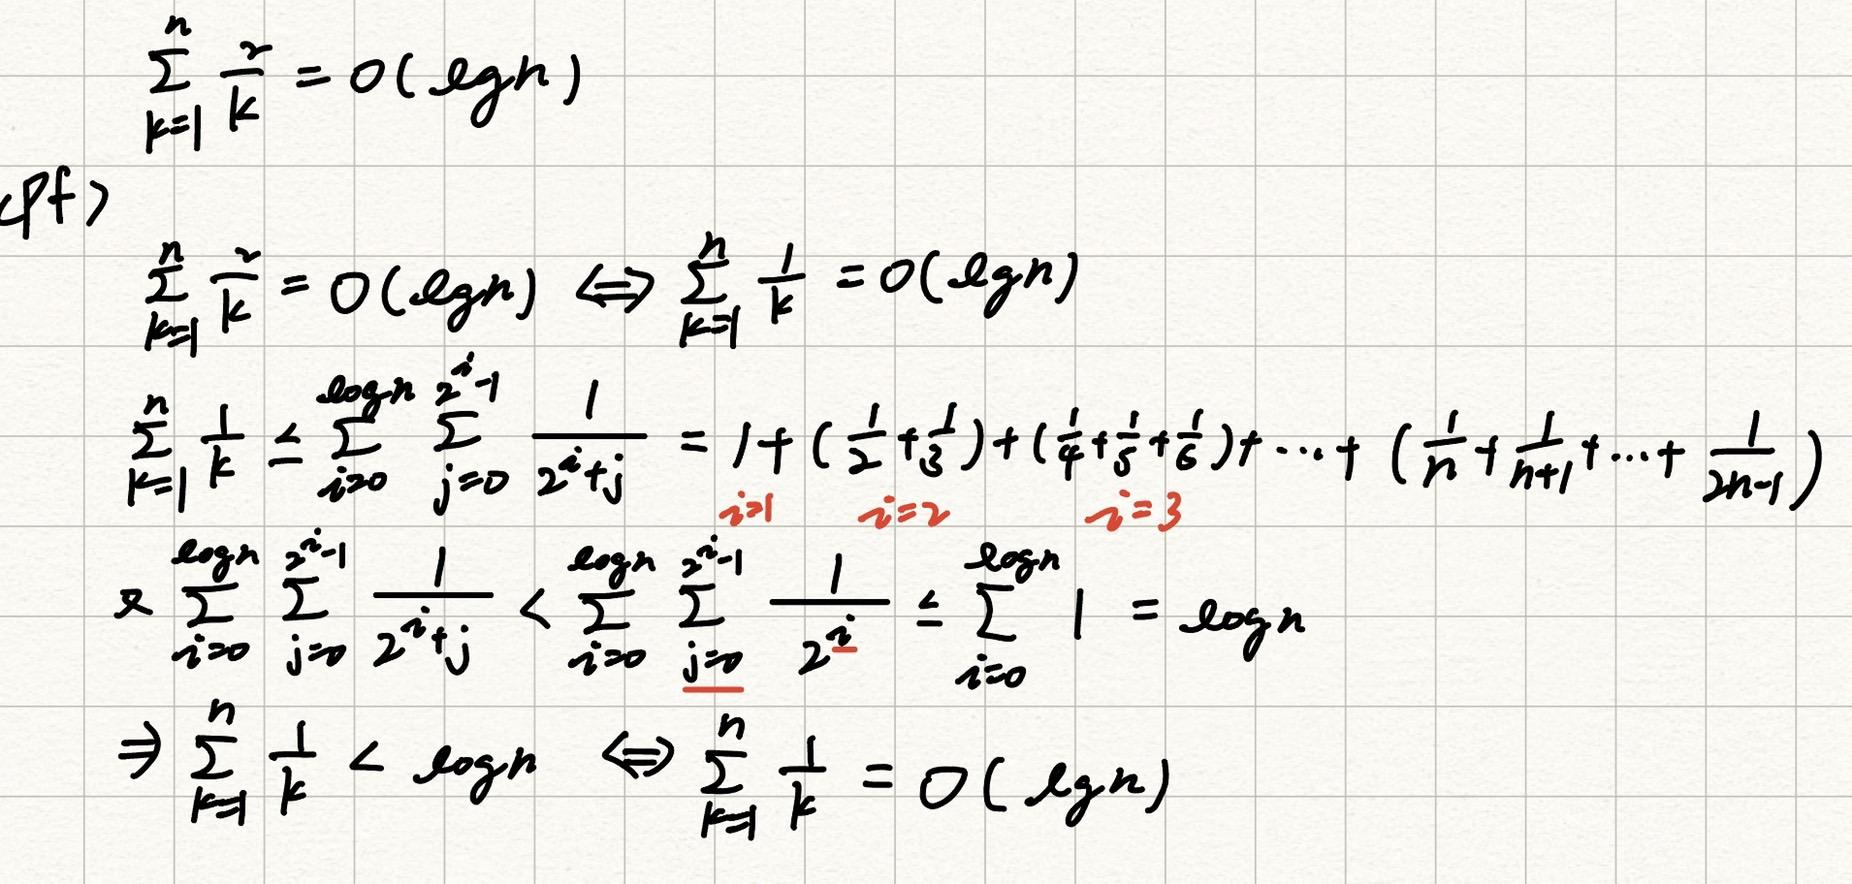 $\sum_{k=1}^{n} \frac{2}{k} = O(\lg n)$
<pf>
$\sum_{k=1}^{n} \frac{2}{k} = O(\lg n) \Leftrightarrow \sum_{k=1}^{n} \frac{1}{k} = O(\lg n)$
$\sum_{k=1}^{n} \frac{1}{k} \leq \sum_{i=0}^{\log n} \sum_{j=0}^{2^i-1} \frac{1}{2^i+j} = 1 + (\frac{1}{2}+\frac{1}{3}) + (\frac{1}{4}+\frac{1}{5}+\frac{1}{6}) + \cdots + (\frac{1}{n}+\frac{1}{n+1}+\cdots+\frac{1}{2n-1})$
i=1 i=2 i=3
$\sum_{i=0}^{\log n} \sum_{j=0}^{2^i-1} \frac{1}{2^i+j} < \sum_{i=0}^{\log n} \sum_{j=0}^{2^i-1} \frac{1}{2^i} \leq \sum_{i=0}^{\log n} 1 = \log n$
$\Rightarrow \sum_{k=1}^{n} \frac{1}{k} < \log n \Leftrightarrow \sum_{k=1}^{n} \frac{1}{k} = O(\lg n)$